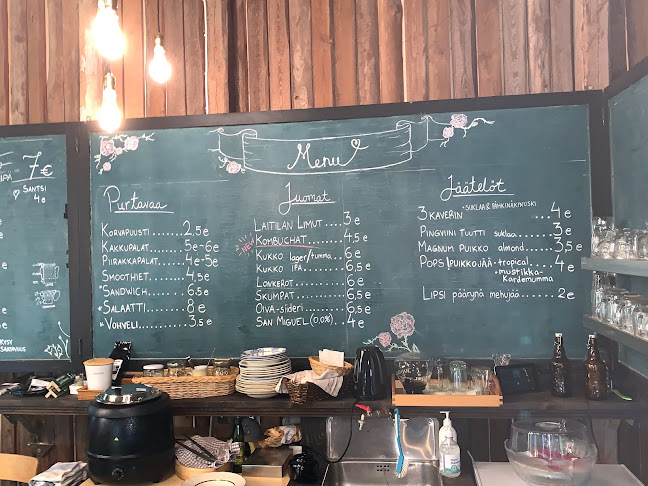 7€
SANTSI
4e
Menu
Purtavaa
KORVAPUUSTI ...... 2.5e
KAKKUPALAT ...... 5e-6e
PIIRAKKAPALAT ...... 4e-5e
SMOOTHIET ...... 4.5e
SANDWICH ...... 6.5e
SALAATTI ...... 8e
VOHVELI ...... 3.5e
Juomat
LAITILAN LIMUT ... 3e
NEW KOMBUCHAT ...... 4.5e
KUKKO lager/tumma ... 6e
KUKKO IPA ...... 6.5e
LONKEROT ...... 6e
SKUMPAT ...... 6.5e
OIVA-siideri ...... 6.5e
SAN MIGUEL (0,0%) ... 4e
Jäätelöt
3 KAVERIN *SUKLAA & PÄHKINÄKINUSKI ... 4e
PINGVIINI TUUTTI suklaa ... 3e
MAGNUM PUIKKO almond ... 3,5e
POPS PUIKKOJÄÄ • tropical ... 4e
• mustikka-
kardemumma
LIPSI päärynä mehujää ... 2e